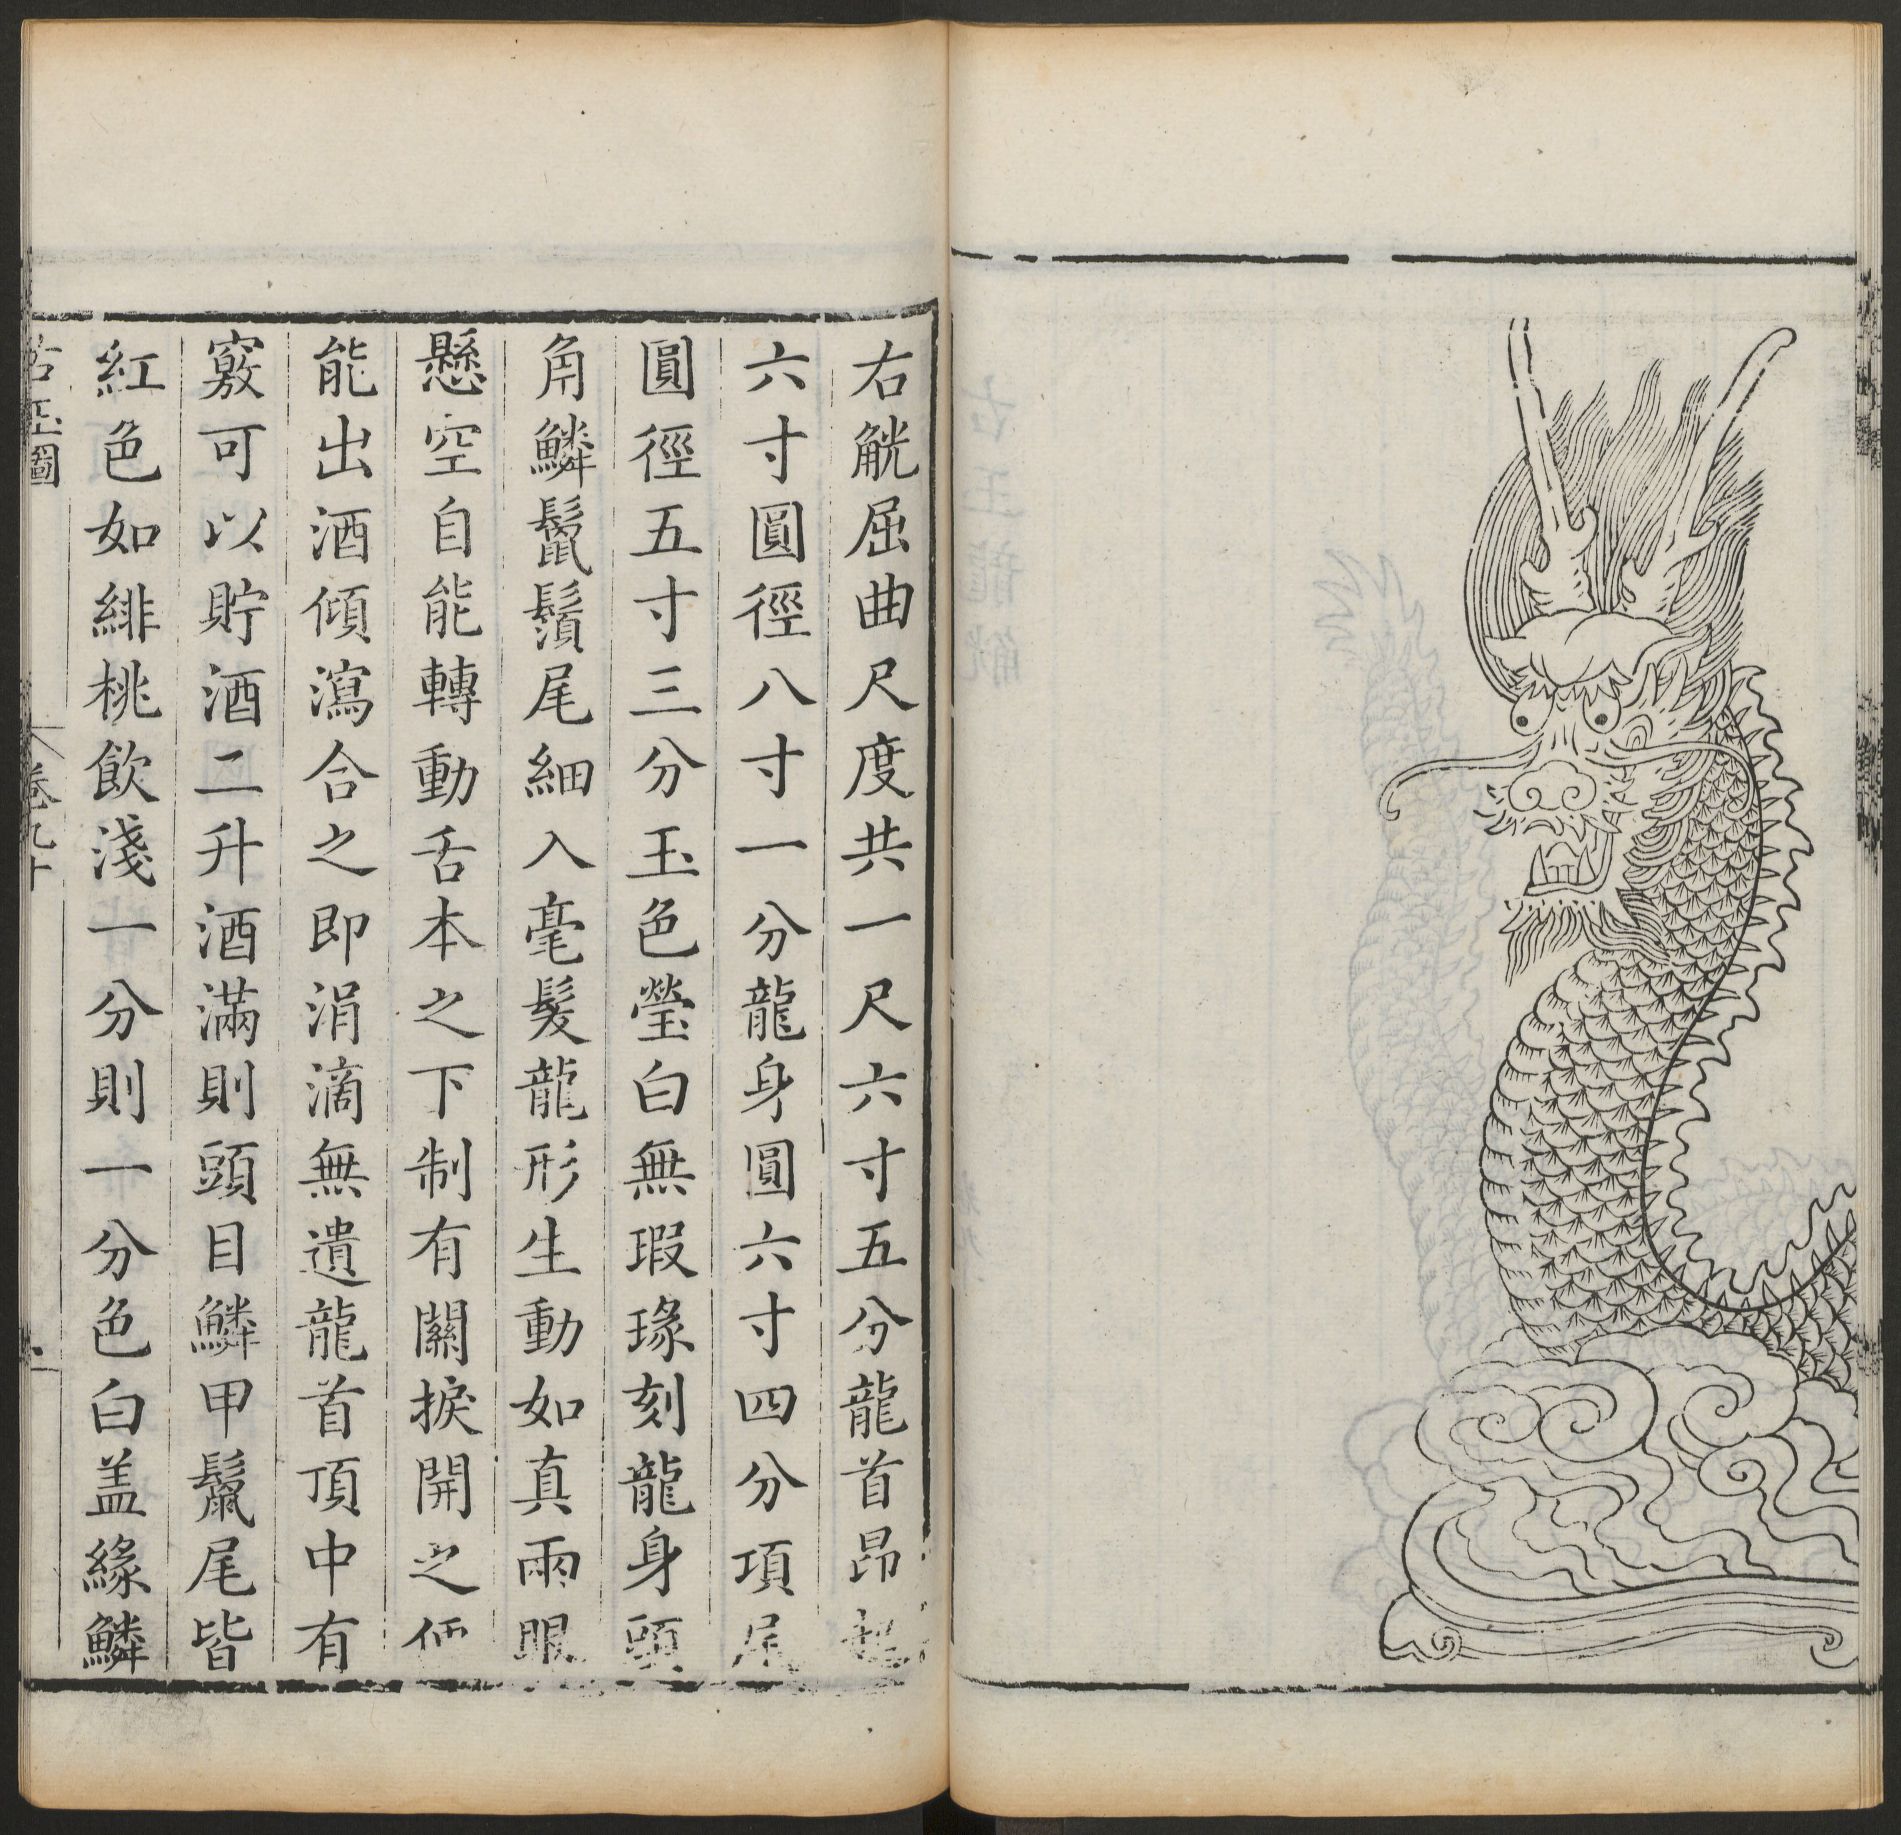 右觥屈曲尺度共一尺六寸五分龍首昂起
六寸圓徑八寸一分龍身圓六寸四分項尾
圓徑五寸三分玉色瑩白無瑕瑑刻龍身頭
角鱗鬣鬚尾細入毫髮龍形生動如真兩眼
懸空自能轉動舌本之下制有關捩開之便
能出酒傾瀉合之即涓滴無遺龍首頂中有
竅可以貯酒二升酒滿則頭目鱗甲鬣尾皆
紅色如緋桃飲淺一分則一分色白盖緣鱗
古玉圖
卷九十